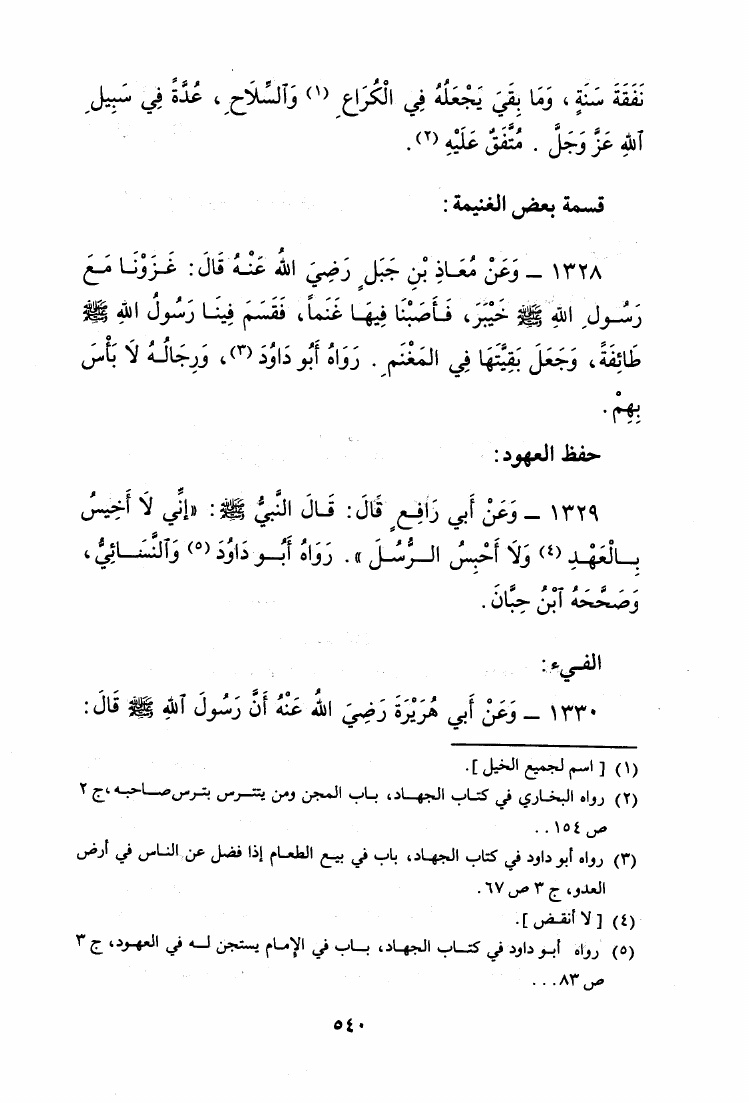 نَفَقَةَ سَنَةٍ، وَمَا بَقِيَ يَجْعَلُهُ فِي الْكُرَاعِ (١) وَٱلسِّلَاحِ، عُدَّةً فِي سَبِيلِ
ٱللهِ عَزَّ وَجَلَّ . مُتَّفَقٌ عَلَيْهِ (٢).
قسمة بعض الغنيمة:
١٣٢٨ – وَعَنْ مُعَاذِ بْنِ جَبَلٍ رَضِيَ اللهُ عَنْهُ قَالَ: غَزَوْنَا مَعَ
رَسُولِ اللهِ ﷺ خَيْبَرَ، فَأَصَبْنَا فِيهَا غَنَماً، فَقَسَمَ فِينَا رَسُولُ اللهِ ﷺ
طَائِفَةً، وَجَعَلَ بَقِيَّتَهَا فِي المَغْنَمِ . رَوَاهُ أَبُو دَاوُدَ (٣)، وَرِجَالُهُ لَا بَأْسَ
بِهِمْ.
حفظ العهود:
١٣٢٩ – وَعَنْ أَبي رَافِعٍ قَالَ: قَالَ النَّبيُّ ﷺ: «إِنِّي لَا أَخِيسُ
بِالْعَهْدِ (٤) وَلَا أَحْبِسُ الرُّسُلَ ». رَوَاهُ أَبُو دَاوُدَ (٥) وَٱلنَّسَائِيُّ،
وَصَحَّحَهُ ٱبْنُ حِبَّانَ.
الفيء:
١٣٣٠ – وَعَنْ أَبي هُرَيْرَةَ رَضِيَ اللهُ عَنْهُ أَنَّ رَسُولَ ٱللهِ ﷺ قَالَ:
(١) [ اسم لجميع الخيل ].
(٢) رواه البخاري في كتاب الجهاد، باب المجن ومن يتترس بترس صاحبه ،ج ٢
ص ١٥٤ . .
(٣) رواه أبو داود في كتاب الجهاد، باب في بيع الطعام إذا فضل عن الناس في أرض
العدو، ج ٣ ص ٦٧.
(٤) [ لا أنقض ].
(٥) رواه أبو داود في كتاب الجهاد، باب في الإمام يستجن له في العهود، ج ٣
ص ٨٣. . .
٥٤٠